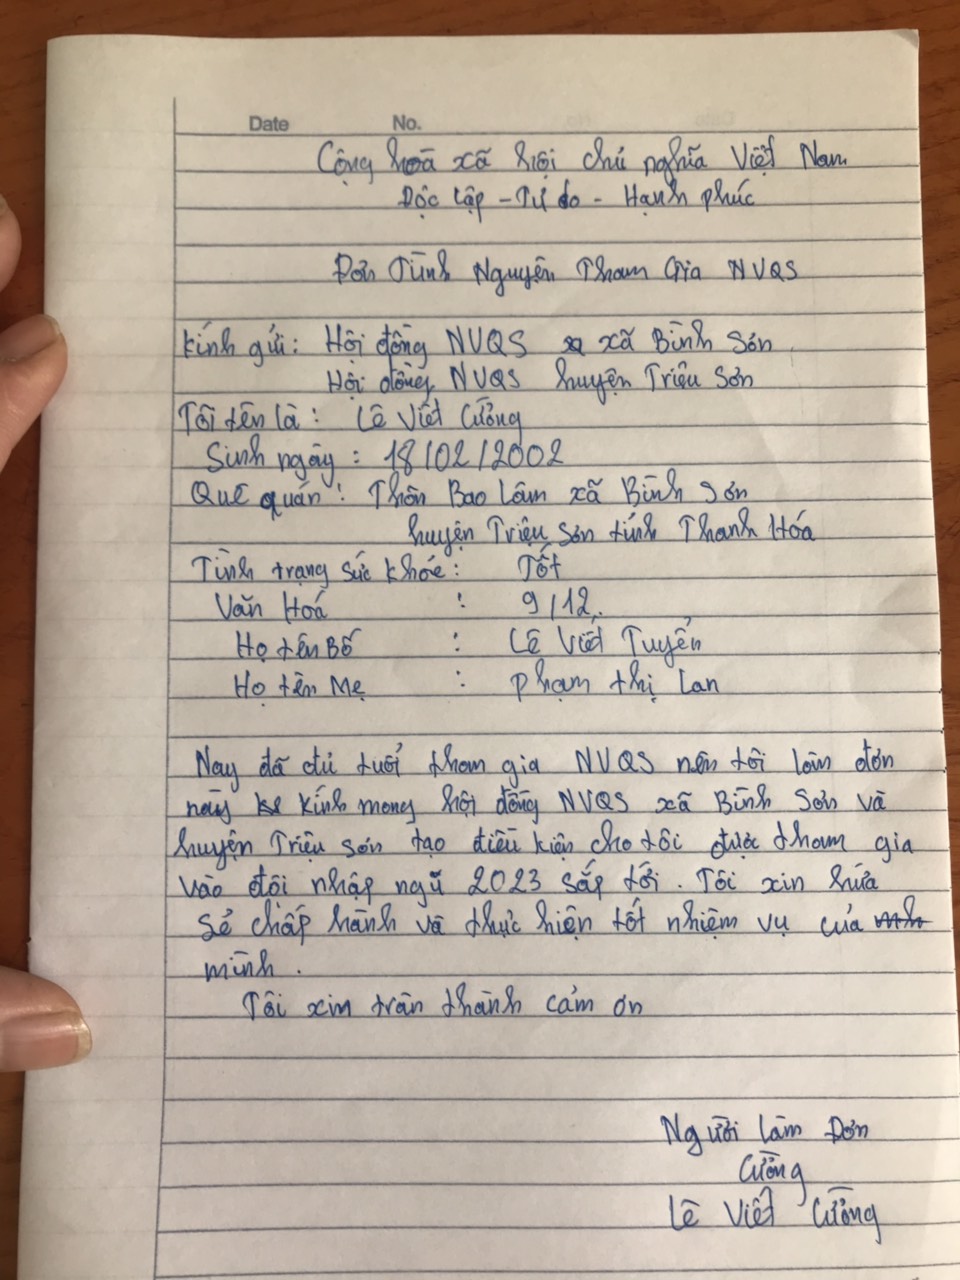 Date No.
Cộng hoà xã hội chủ nghĩa Việt Nam
Độc lập - Tự do - Hạnh phúc
Đơn Tình Nguyện Tham Gia NVQS
Kính gửi: Hội đồng NVQS xã Bình Sơn
Hội đồng NVQS huyện Triệu Sơn
Tôi tên là: Lê Viết Cường
Sinh ngày: 18/02/2002
Quê quán: Thôn Bao Lâm xã Bình Sơn
huyện Triệu Sơn tỉnh Thanh Hóa
Tình trạng sức khỏe: Tốt
Văn Hoá : 9/12.
Họ tên Bố : Lê Viết Tuyển
Họ tên Mẹ : Phạm thị Lan
Nay đã đủ tuổi tham gia NVQS nên tôi làm đơn
này kính mong hội đồng NVQS xã Bình Sơn và
huyện Triệu Sơn tạo điều kiện cho tôi được tham gia
vào đội nhập ngũ 2023 sắp tới. Tôi xin hứa
sẻ chấp hành và thực hiện tốt nhiệm vụ của
mình.
Tôi xin trân thành cảm ơn
Người làm Đơn
Cường
Lê Viết Cường